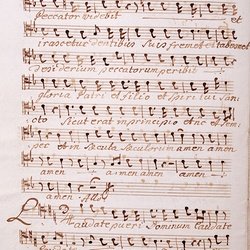 peccator videbit et
irascetur dentibus suis fremet et tabescet
desiderium peccatorum peribit
gloria Patri et filio et spiritui san:
cto Sicut erat in principio et nc et sem:
per et in Sæcula Sæculorum amen amen
amen amen amen
amen
Laudate pueri Dominum laudate